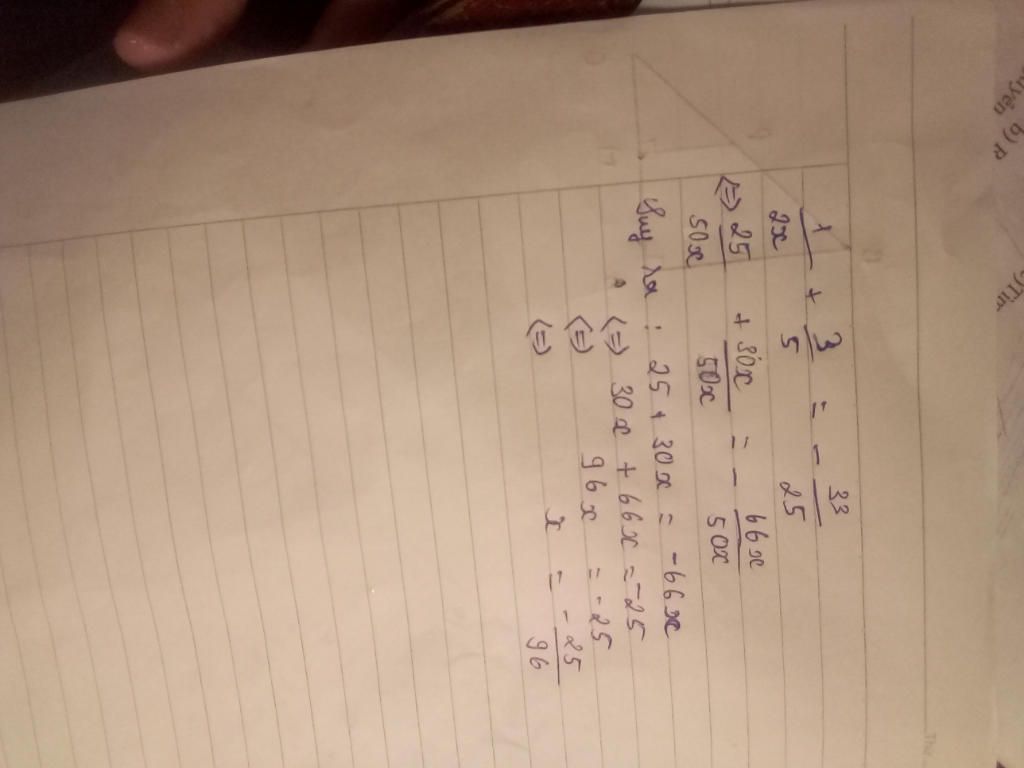 1/2x + 3/5 = - 33/25
(=) 25/50x + 30x/50x = - 66x/50x
Suy ra : 25 + 30x = -66x
(=) 30x + 66x = -25
(=) 96x = -25
(=) x = - 25/96